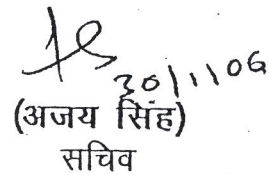 30/1/06
(अजय सिंह)
सचिव